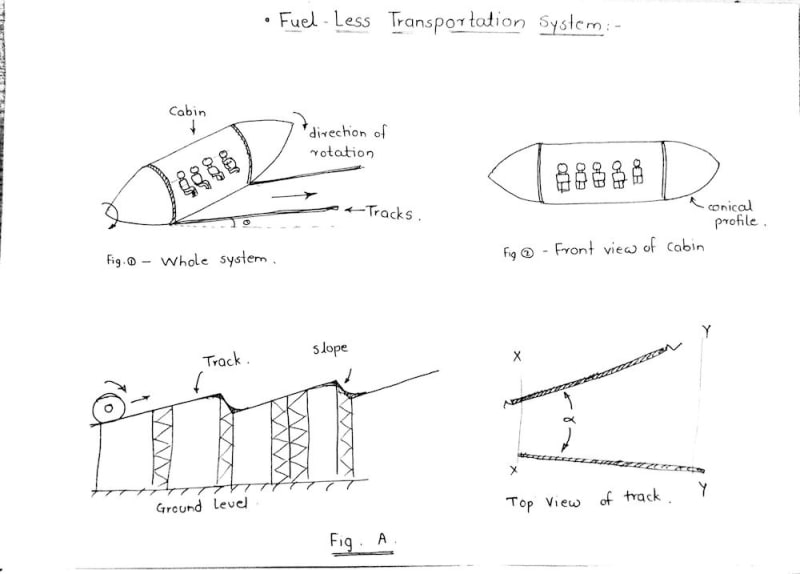 • Fuel-Less Transportation System:-
Cabin
direction of
rotation
Tracks.
θ
Fig.① – Whole system.
conical
profile.
Fig ② - Front view of cabin
Track.
slope
Ground Level
X
Y
α
X
Y
Top View of track.
Fig. A.